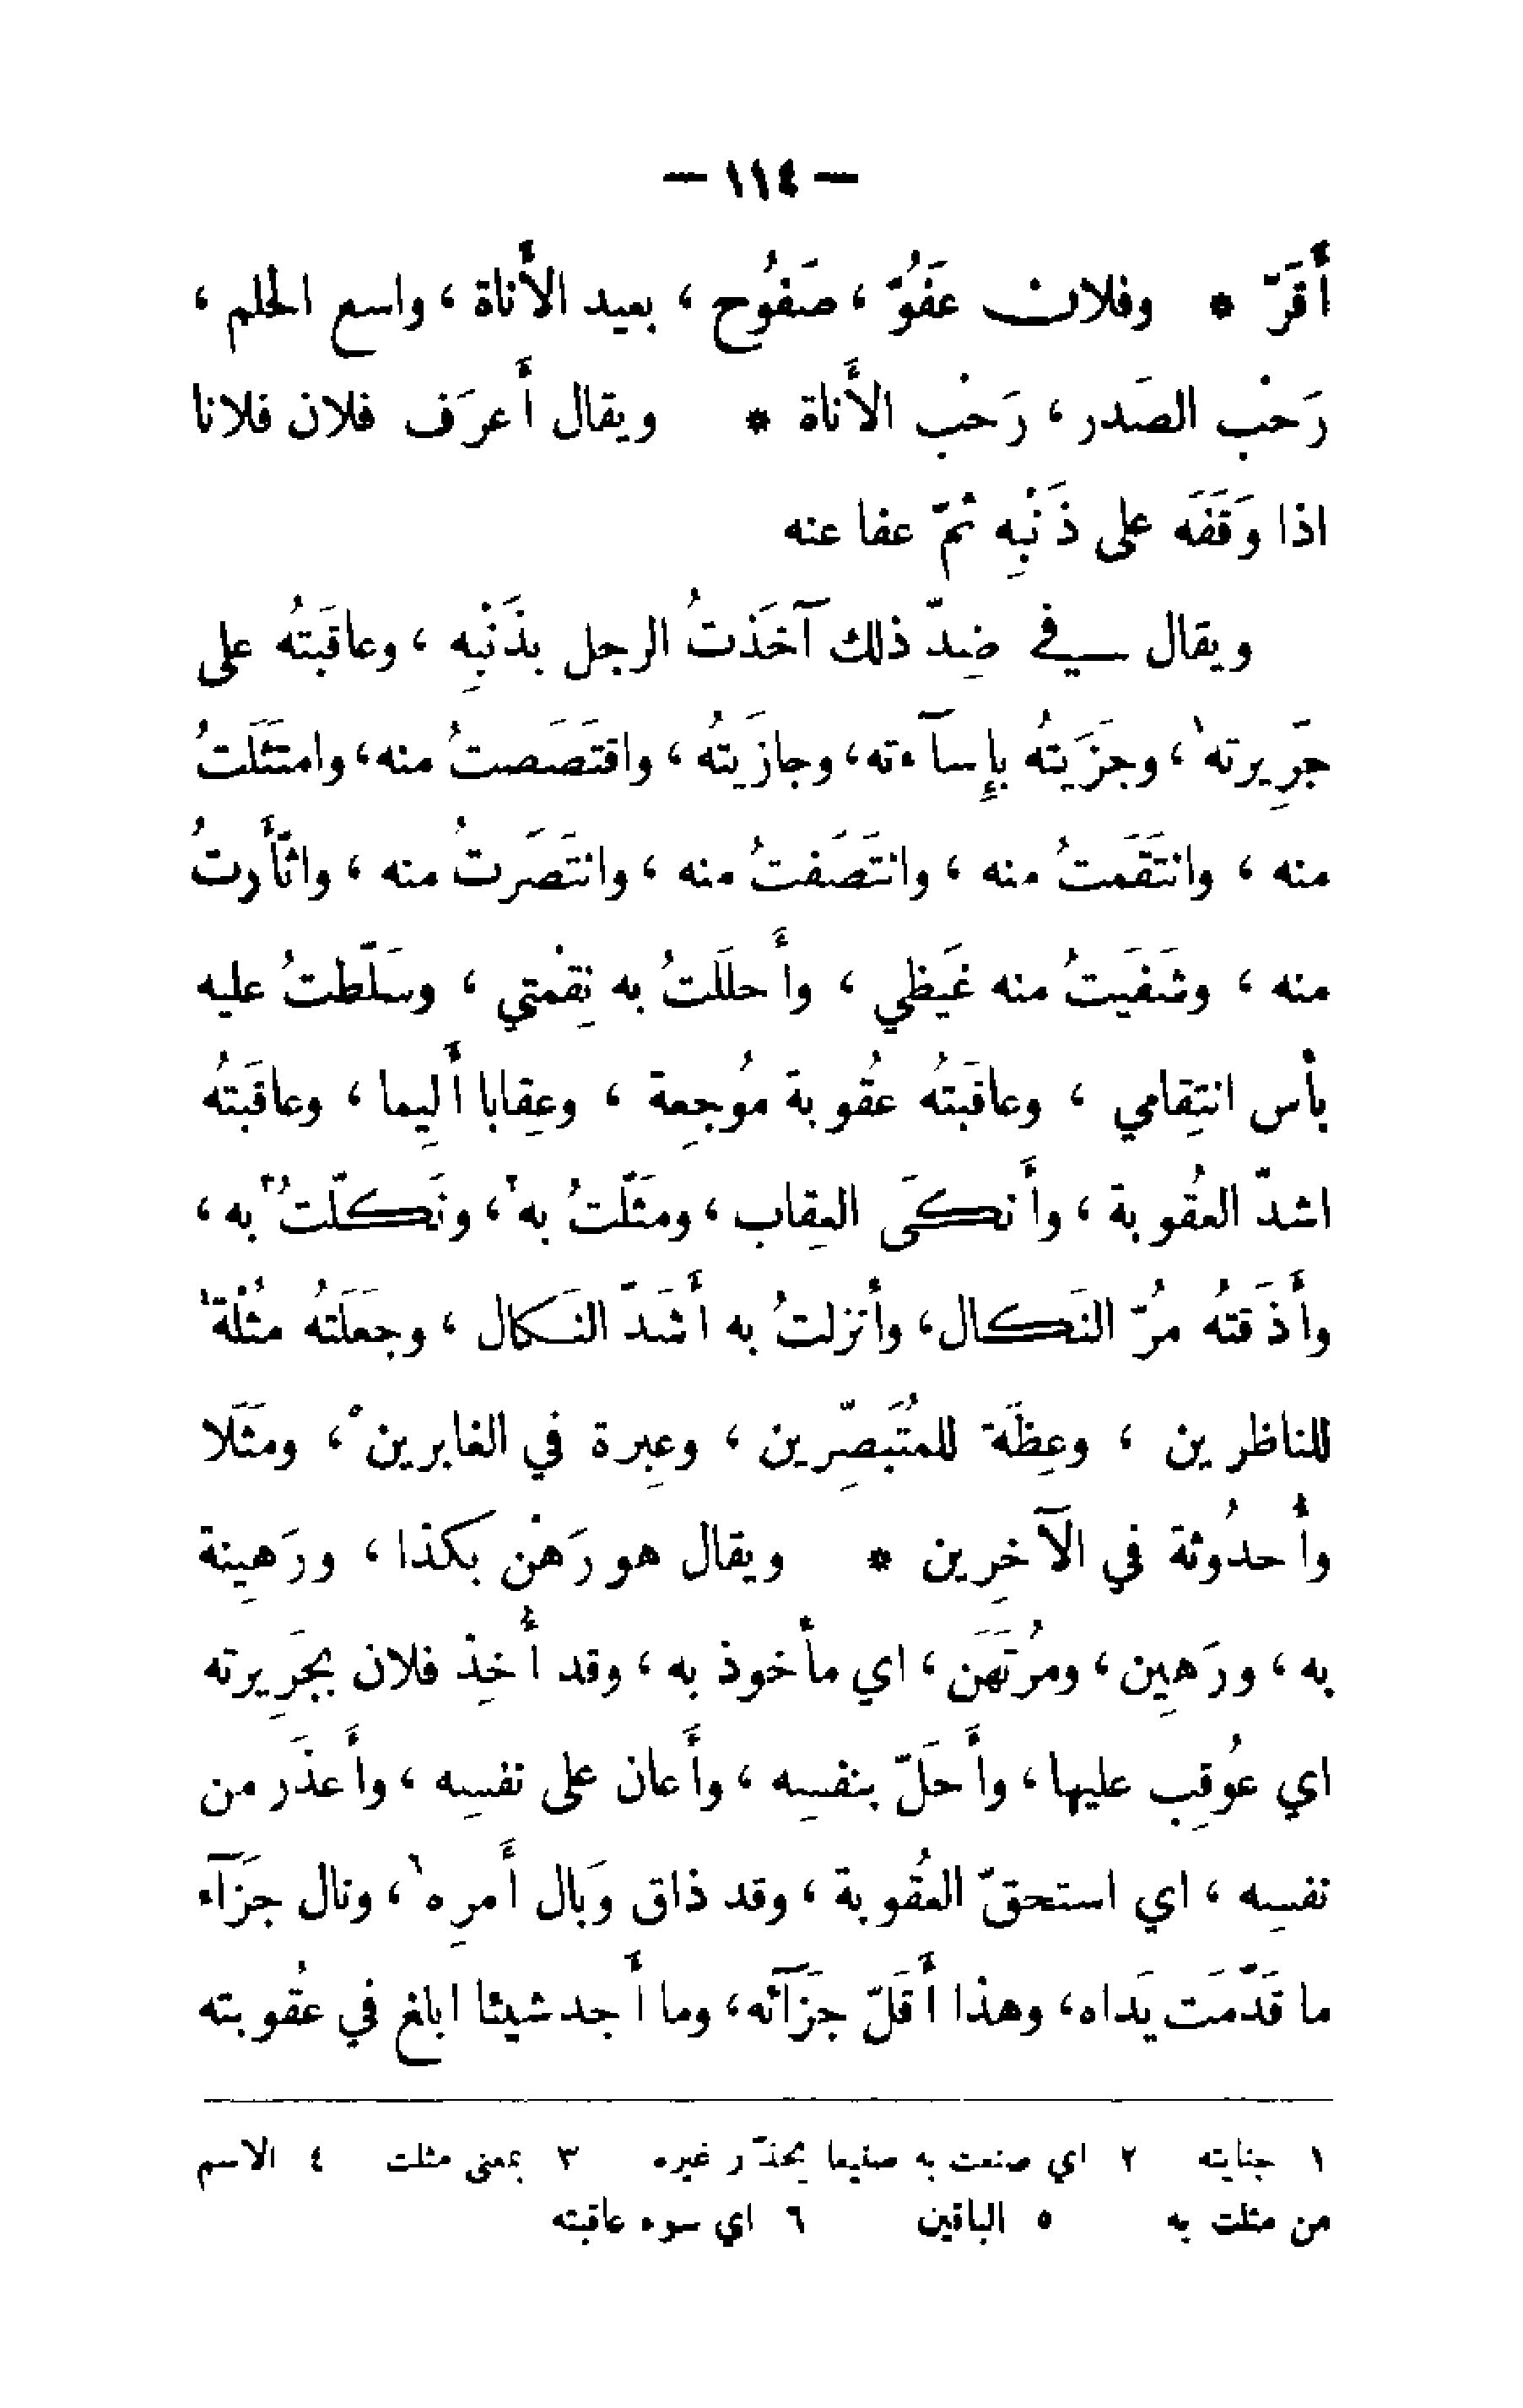 — ١١٤ —
أَقَرّ * وفلان عَفُوّ ، صَفُوح ، بعيد الأَناة ، واسع الحلم ،
رَحْب الصَدر ، رَحْب الأَناة * ويقال أَعرَف فلان فلانا
اذا وَقَفَه على ذَنْبِه ثمّ عفا عنه
ويقال في ضِدّ ذلك آخَذتُ الرجل بذَنْبِه ، وعاقَبتُه على
جَرِيرته١ ، وجَزَيتُه بإِسآءته ، وجازَيتُه ، واقتَصَصتُ منه ، وامتَثَلتُ
منه ، وانتَقَمتُ منه ، وانتَصَفتُ منه ، وانتَصَرتُ منه ، واثّأَرتُ
منه ، وشَفَيتُ منه غَيظي ، وأَحلَلتُ به نِقْمتي ، وسَلّطتُ عليه
بأْس انتِقامي ، وعاقَبتُه عُقوبة مُوجِعة ، وعِقابا أَلِيما ، وعاقَبتُه
اشدّ العُقوبة ، وأَنكَى العِقاب ، ومَثّلتُ به٢ ، ونَكّلتُ٣ به ،
وأَذَقتُه مُرّ النَكال ، وأنزلتُ به أَشَدّ النَكال ، وجعَلَته مُثْلة٤
للناظرين ، وعِظَة للمُتَبَصِّرين ، وعِبرة في الغابرين٥ ، ومَثَلا
وأُحدُوثة في الآخِرين * ويقال هو رَهْن بكذا ، ورَهِينة
به ، ورَهِين ، ومُرتَهَن ، اي مأخوذ به ، وقد أُخِذ فلان بجَرِيرته
اي عُوقِب عليها ، وأَحَلّ بنفسِه ، وأَعان على نفسِه ، وأَعذَر من
نفسِه ، اي استحقّ العُقوبة ، وقد ذاق وَبال أَمرِه٦ ، ونال جَزَآء
ما قَدّمَت يَداه ، وهذا أَقَلّ جَزَآئه ، وما أَجد شيئا ابلغ في عُقوبته
١ جنايته ٢ اي صنعت به صنيعا يحذّر غيره ٣ بمعنى مثلت ٤ الاسم
من مثلت به ٥ الباقين ٦ اي سوء عاقبته